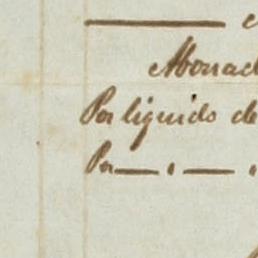 Abonad
Por liquido de
Por — . — .